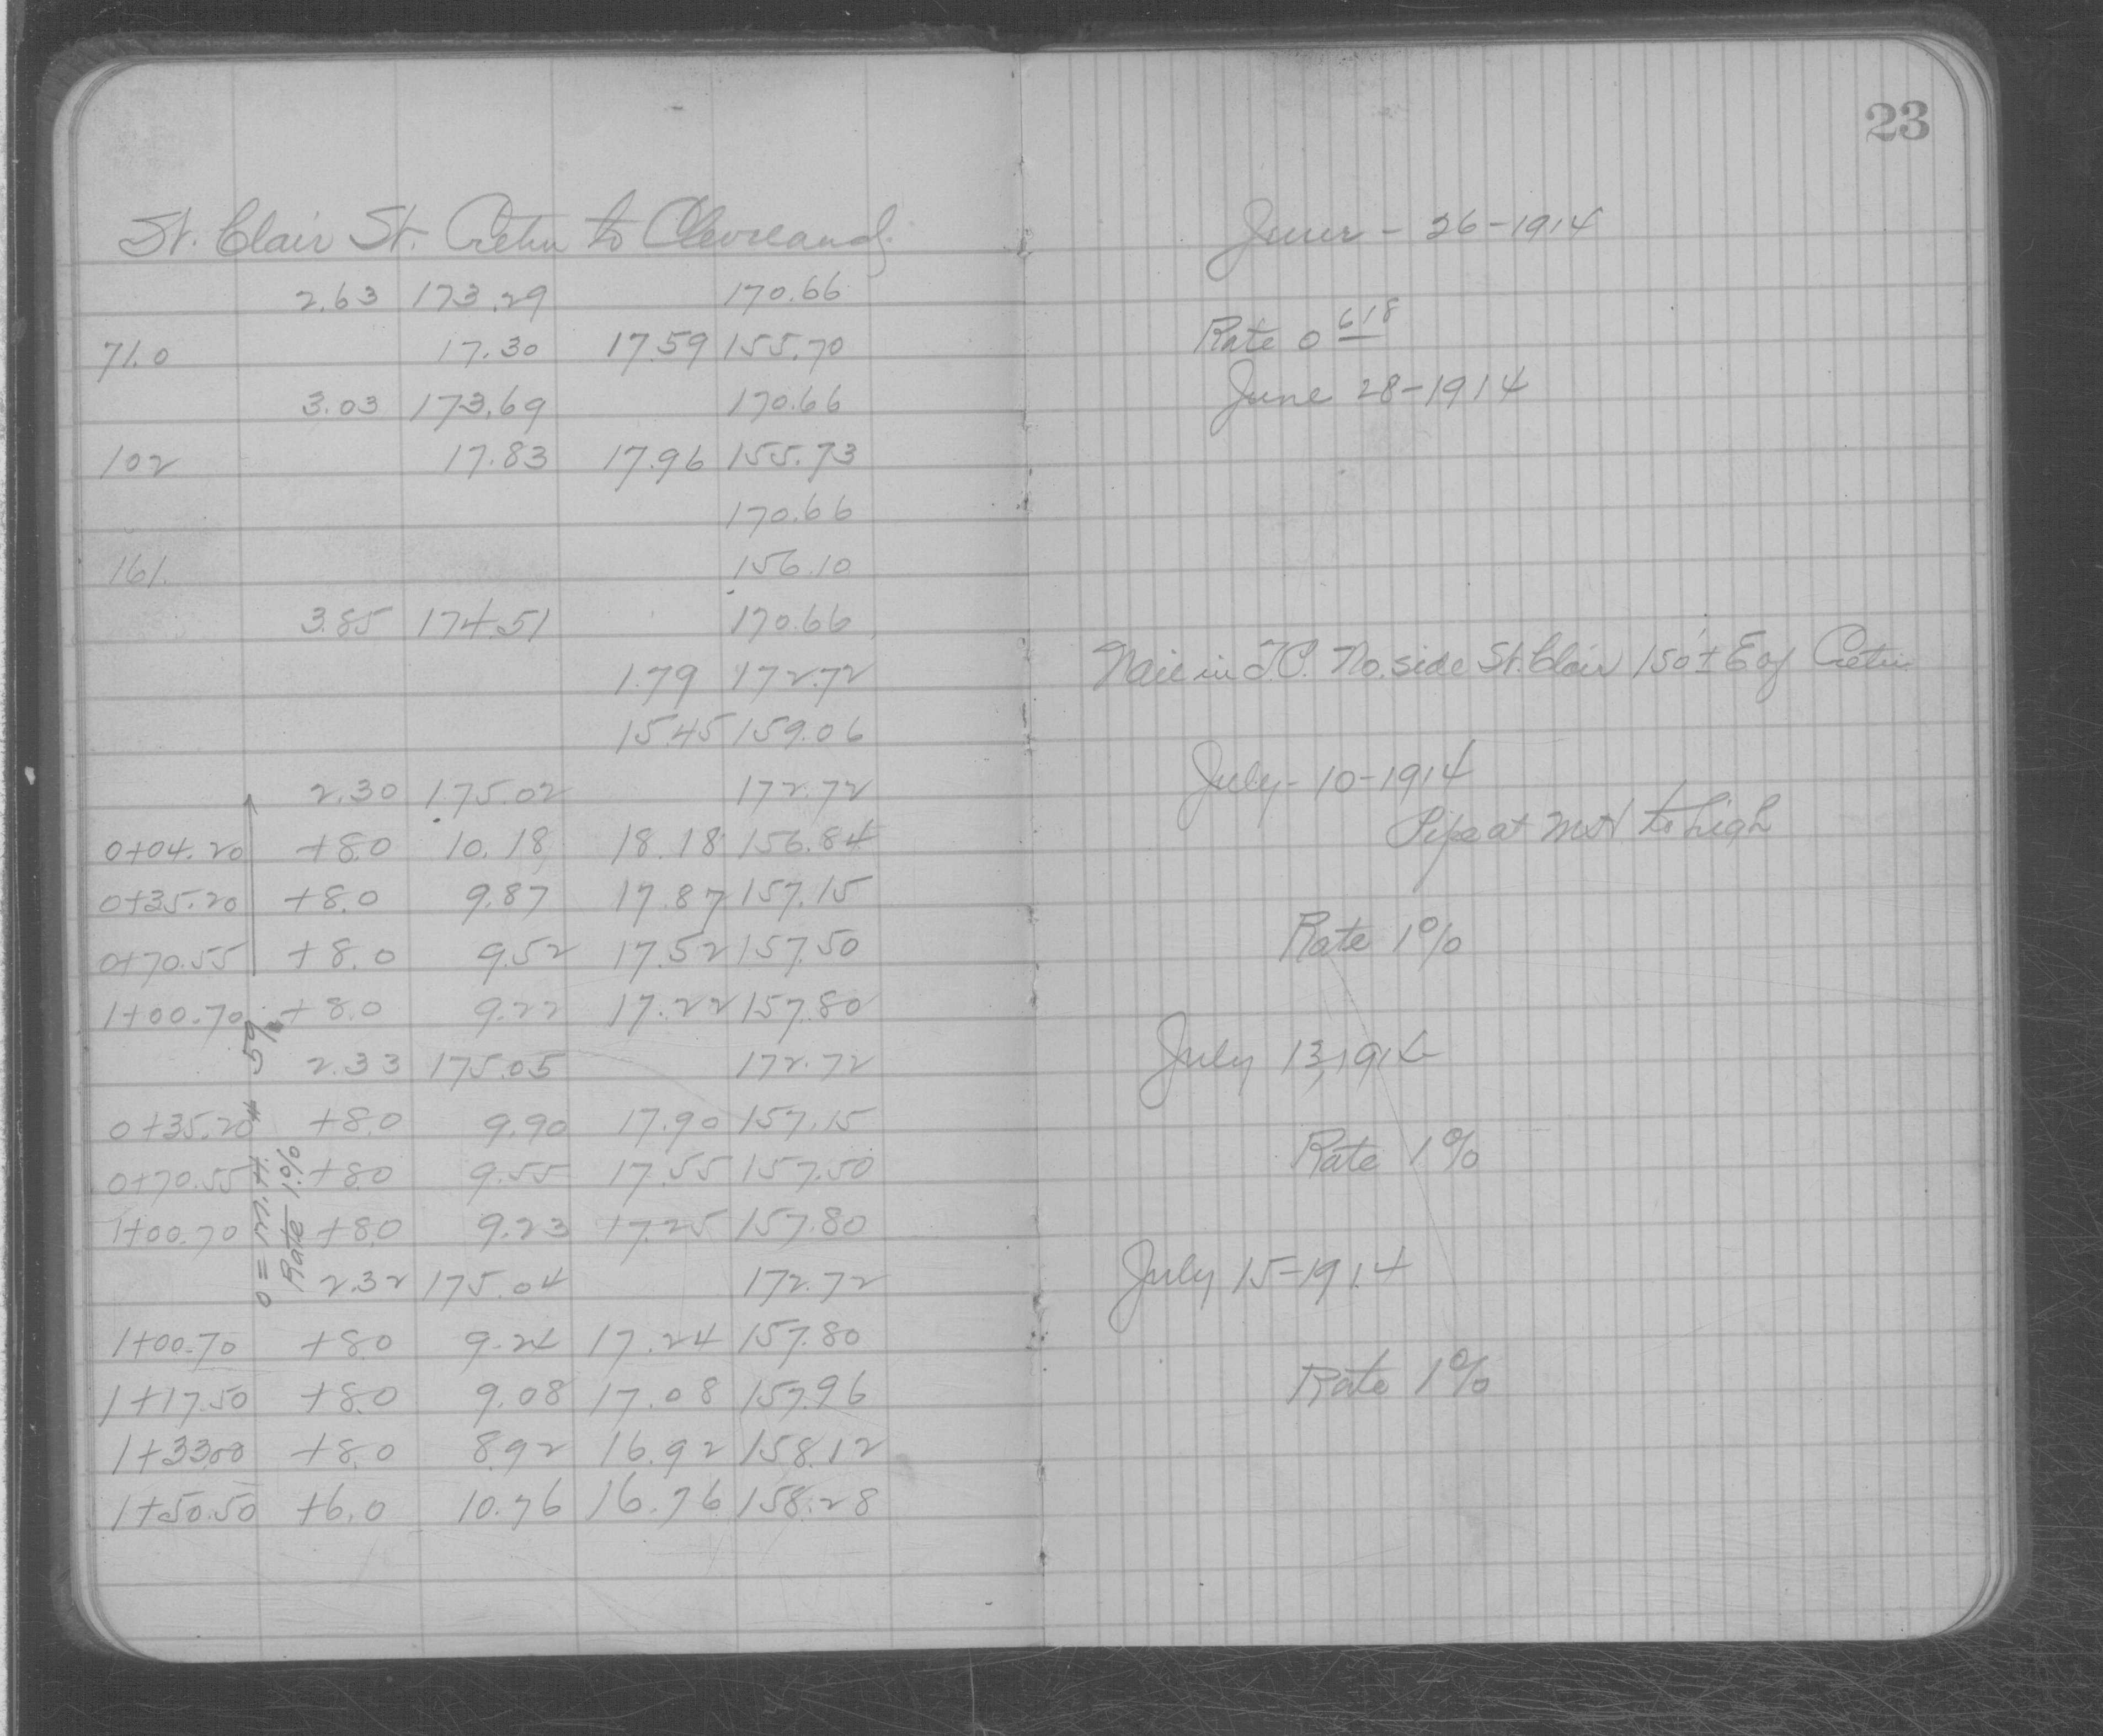 23
St. Clair St. Cretin to Cleveland.
2.63 173.29 170.66
71.0 17.30 17.59 155.70
3.03 173.69 170.66
102 17.83 17.96 155.73
170.66
161. 156.10
3.85 174.51 170.66
1.79 172.72
15.45 159.06
2.30 175.02 172.72
0+04.20 +8.0 10.18 18.18 156.84
0+35.20 +8.0 9.87 17.87 157.15
0+70.55 +8.0 9.52 17.52 157.50
1+00.70 +8.0 9.22 17.22 157.80
2.33 175.05 172.72
0+35.20 +8.0 9.90 17.90 157.15
0+70.55 +8.0 9.55 17.55 157.50
1+00.70 +8.0 9.23 17.25 157.80
2.32 175.04 172.72
1+00.70 +8.0 9.24 17.24 157.80
1+17.50 +8.0 9.08 17.08 157.96
1+33.00 +8.0 8.92 16.92 158.12
1+50.50 +6.0 10.76 16.76 158.28
0 = M.H.
Rate 1.%
June - 26-1914
Rate 0 618
June 28-1914
Nail in T.P. No. side St. Clair 150'± E of Cretin
July-10-1914
Pipe at to high
Rate 1%
July 13, 1914
Rate 1%
July 15-1914
Rate 1%